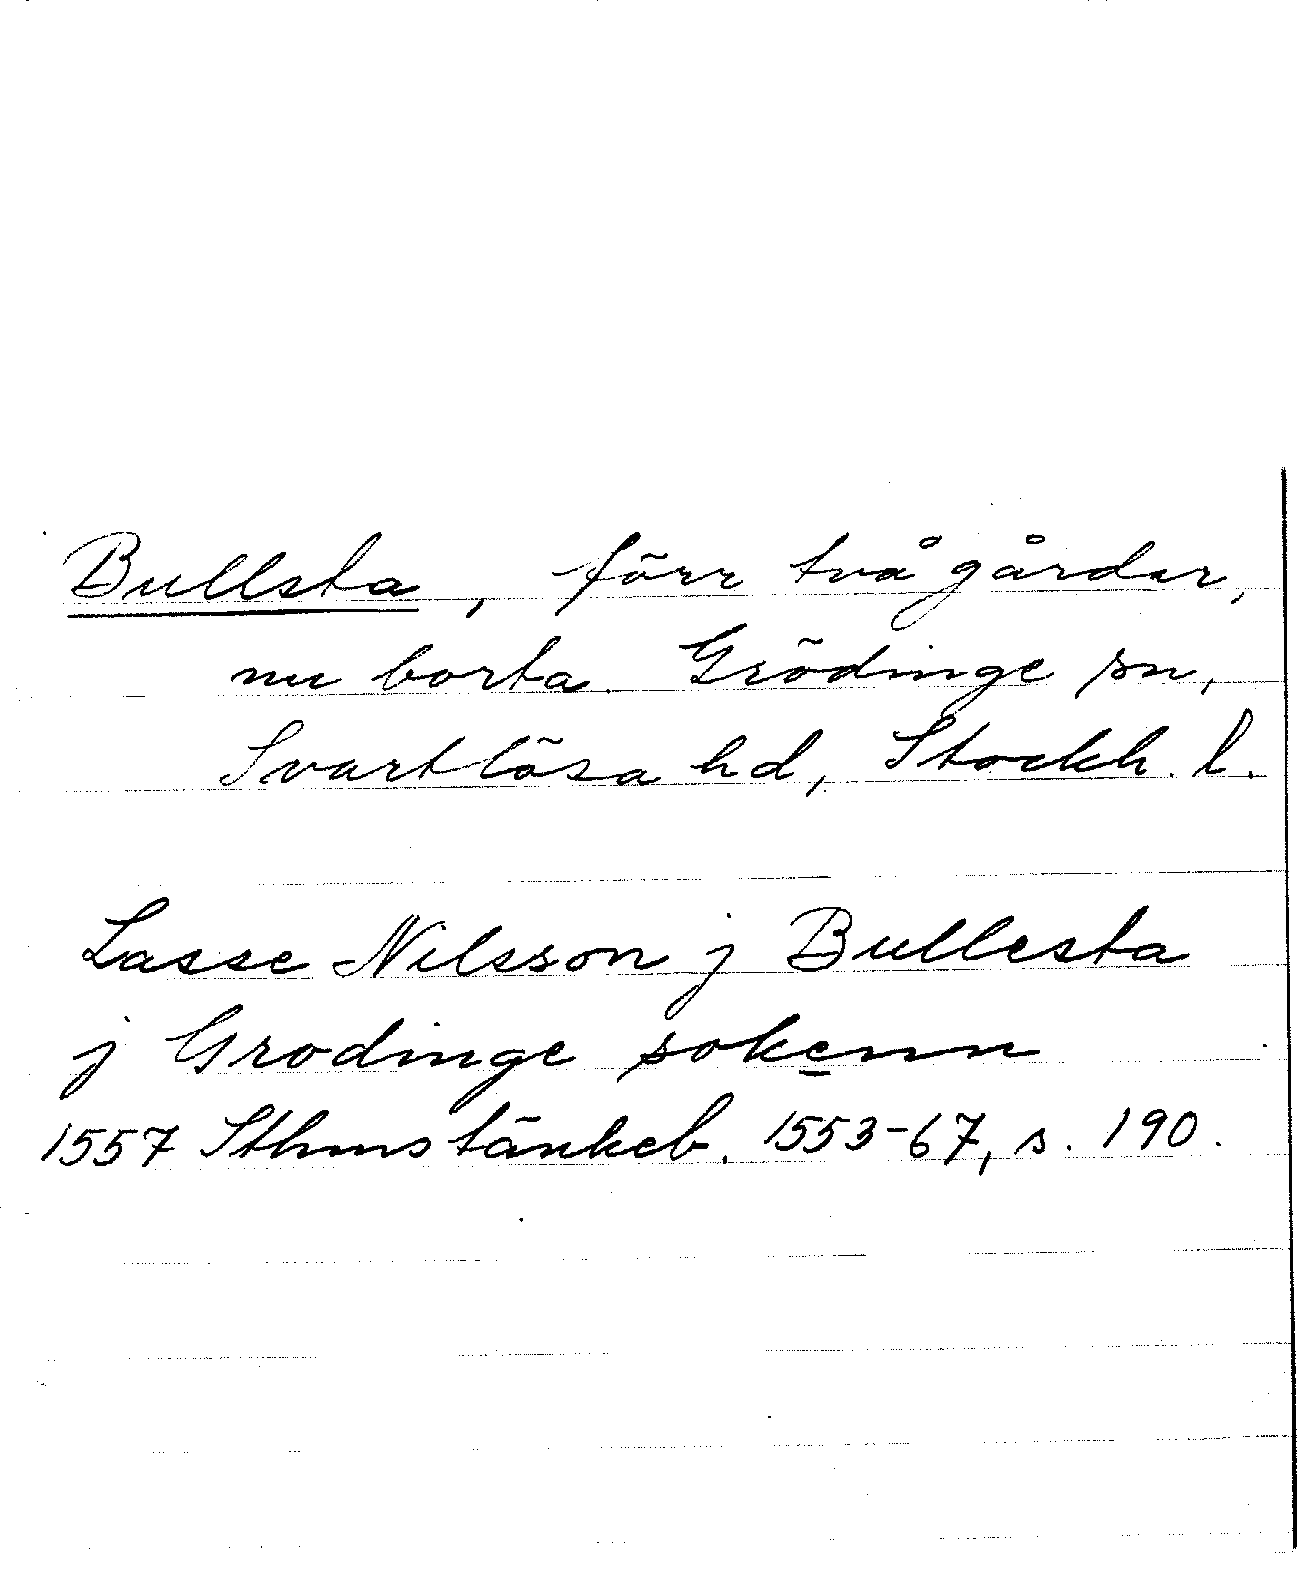 Bullsta, förr två gårdar,
nu borta. Grödinge sn,
Svartlösa hd, Stockh. l.
Lasse Nilsson j Bullesta
j Grodinge sokenn
1557 Sthms tänkeb. 1553-67, s. 190.